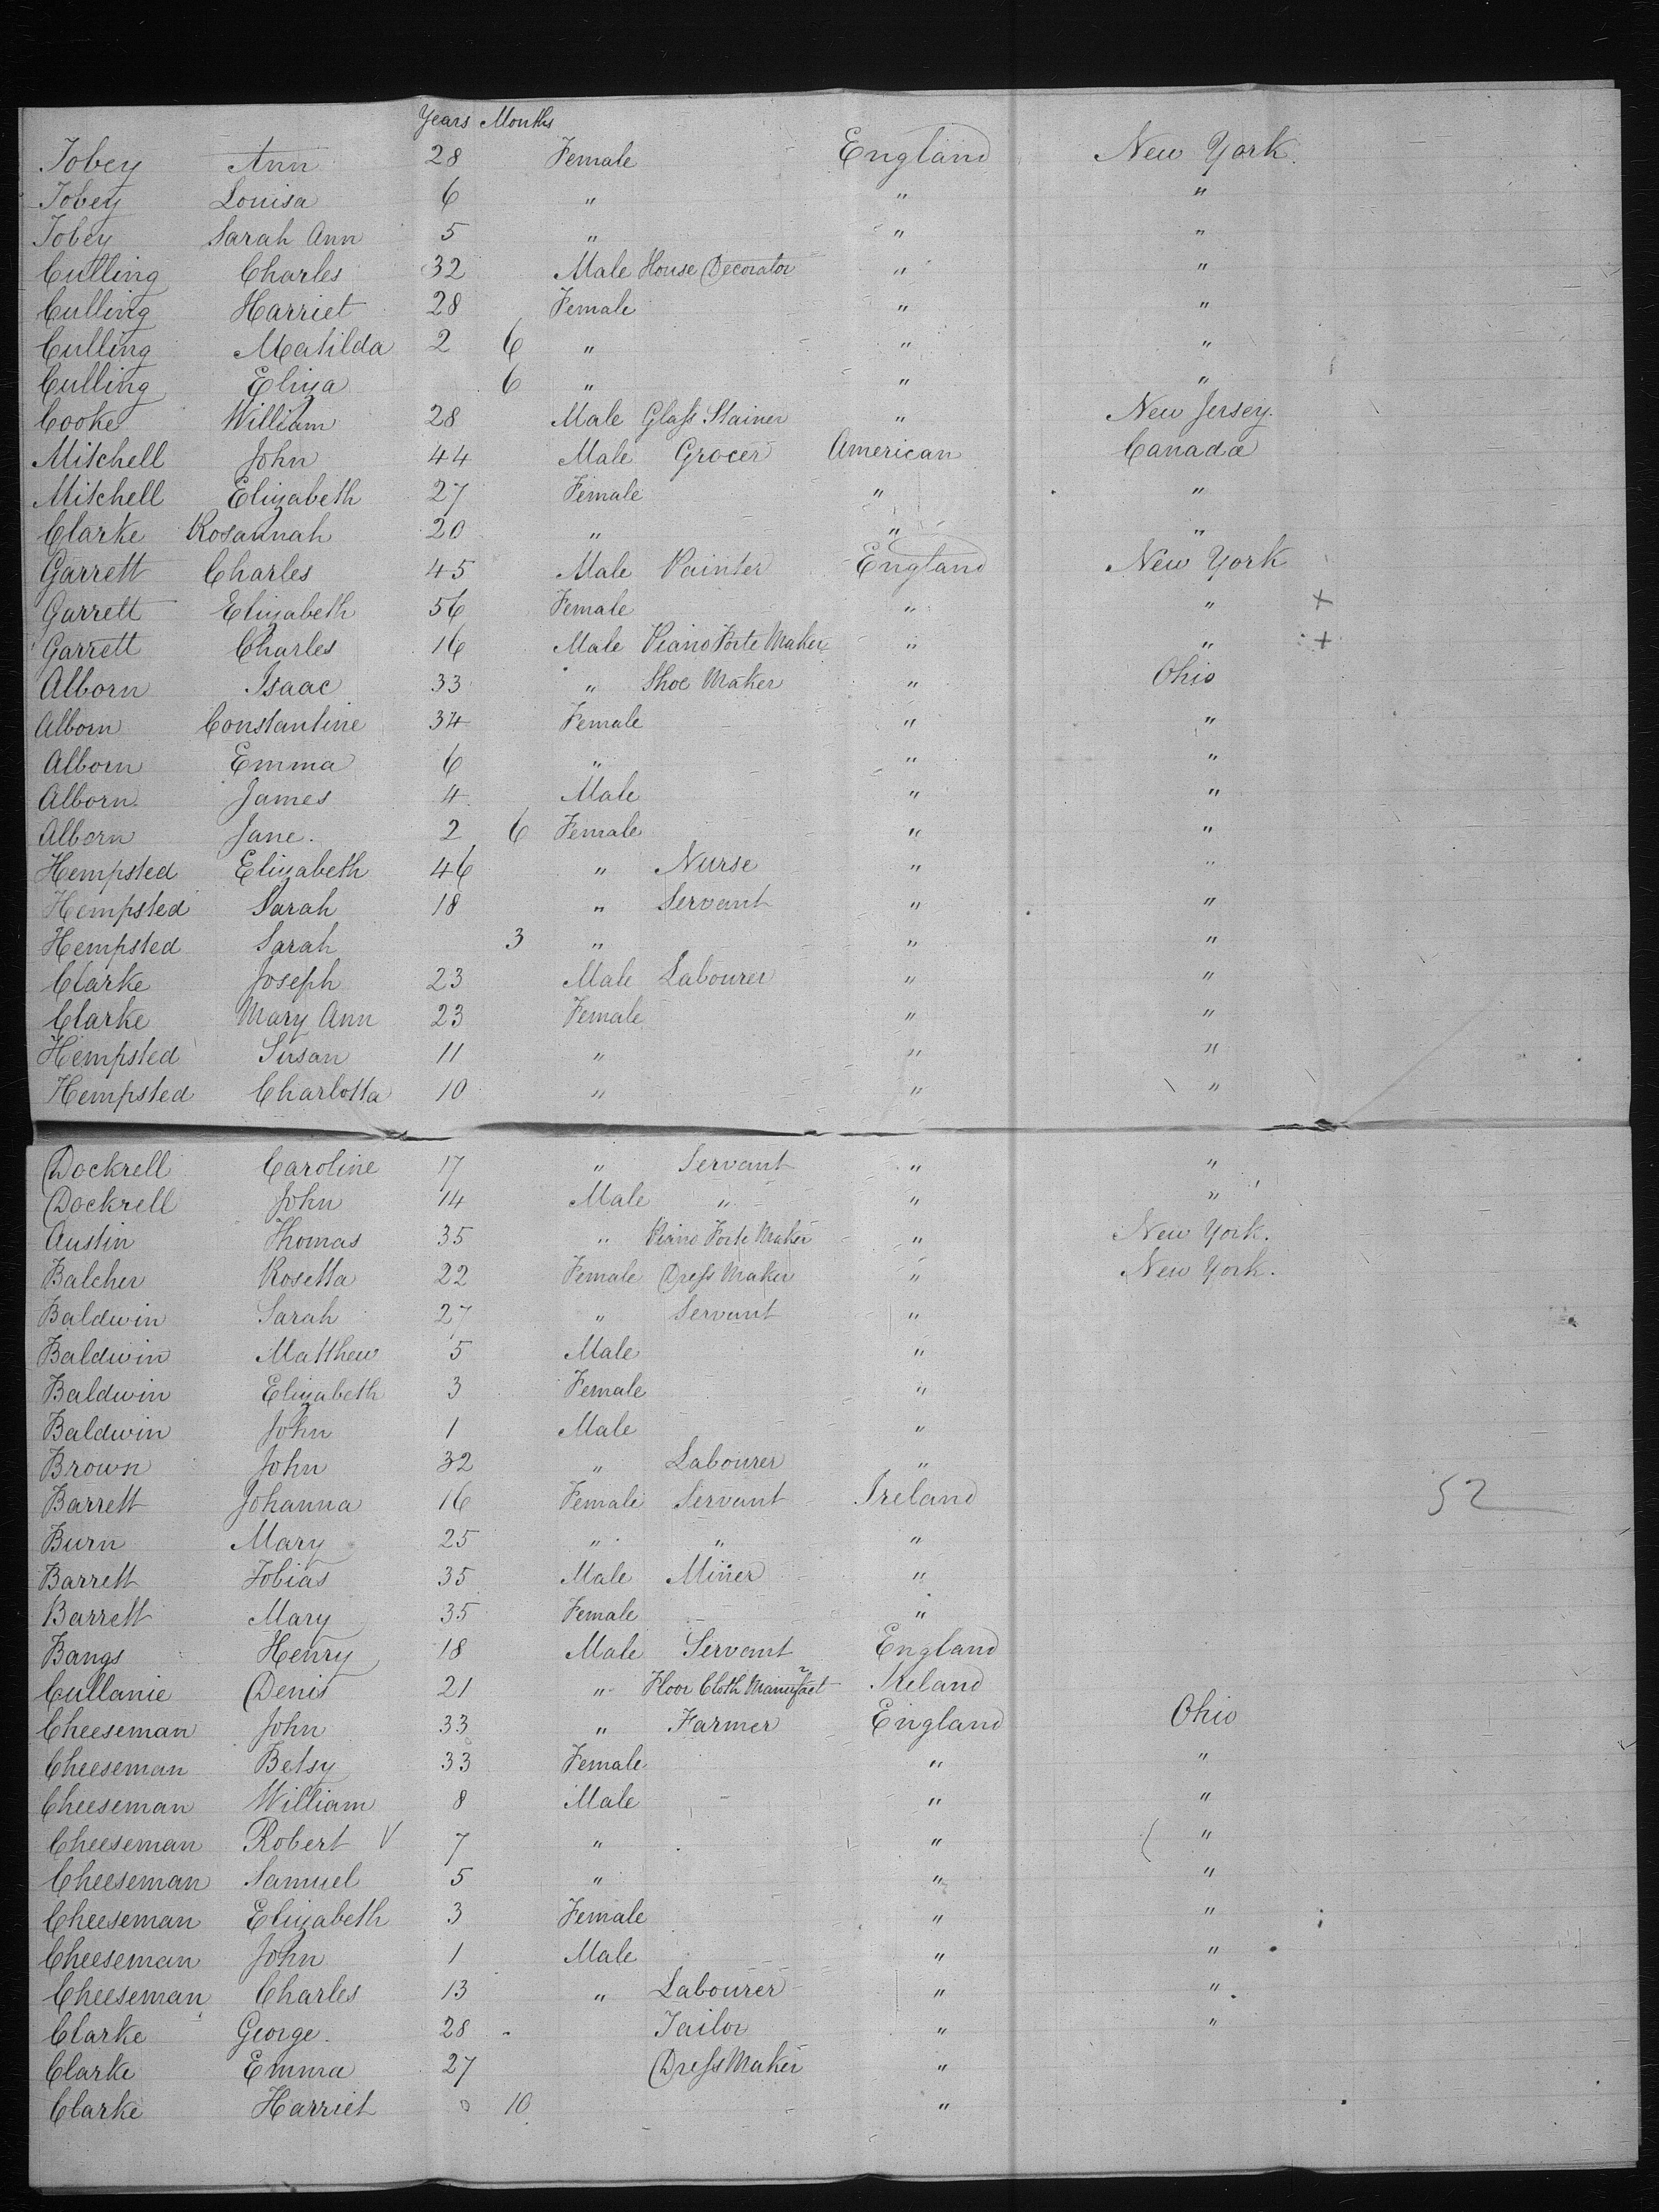 Years Months
Tobey Ann 28 Female England New York.
Tobey Louisa 6 " " "
Tobey Sarah Ann 5 " " "
Culling Charles 32 Male House Decorator " "
Culling Harriet 28 Female " "
Culling Matilda 2 6 " " "
Culling Eliza 6 " " "
Cooke William 28 Male Glass Stainer " New Jersey.
Mitchell John 44 Male Grocer American Canada
Mitchell Elizabeth 27 Female " "
Clarke Rosannah 20 " " "
Garrett Charles 45 Male Painter England New York
Garrett Elizabeth 56 Female " " +
Garrett Charles 16 Male Piano Forte Maker " " +
Alborn Isaac 33 " Shoe Maker " Ohio
Alborn Constantine 34 Female " "
Alborn Emma 6 " " "
Alborn James 4 Male " "
Alborn Jane. 2 6 Female " "
Hempsted Elizabeth 46 " Nurse " "
Hempsted Sarah 18 " Servant " "
Hempsted Sarah 3 " " "
Clarke Joseph 23 Male Labourer " "
Clarke Mary Ann 23 Female " "
Hempsted Susan 11 " " "
Hempsted Charlotta 10 " " "
Dockrell Caroline 17 " Servant " "
Dockrell John 14 Male " " "
Austin Thomas 35 " Piano Forte Maker " New York.
Balcher Rosetta 22 Female Dress Maker " New York.
Baldwin Sarah 27 " Servant "
Baldwin Matthew 5 Male "
Baldwin Elizabeth 3 Female "
Baldwin John 1 Male "
Brown John 32 " Labourer "
Barrett Johanna 16 Female Servant Ireland 52
Burn Mary 25 " " "
Barrett Tobias 35 Male Miner "
Barrett Mary 35 Female "
Bangs Henry 18 Male Servant England
Cullanie Denis 21 " Floor Cloth Manufact^r Ireland
Cheeseman John 33 " Farmer England Ohio
Cheeseman Betsy 33 Female " "
Cheeseman William 8 Male " "
Cheeseman Robert V 7 " " "
Cheeseman Samuel 5 " " "
Cheeseman Elizabeth 3 Female " "
Cheeseman John 1 Male " "
Cheeseman Charles 13 " Labourer " "
Clarke George. 28 Tailor " "
Clarke Emma 27 Dress Maker "
Clarke Harriet 0 10 "